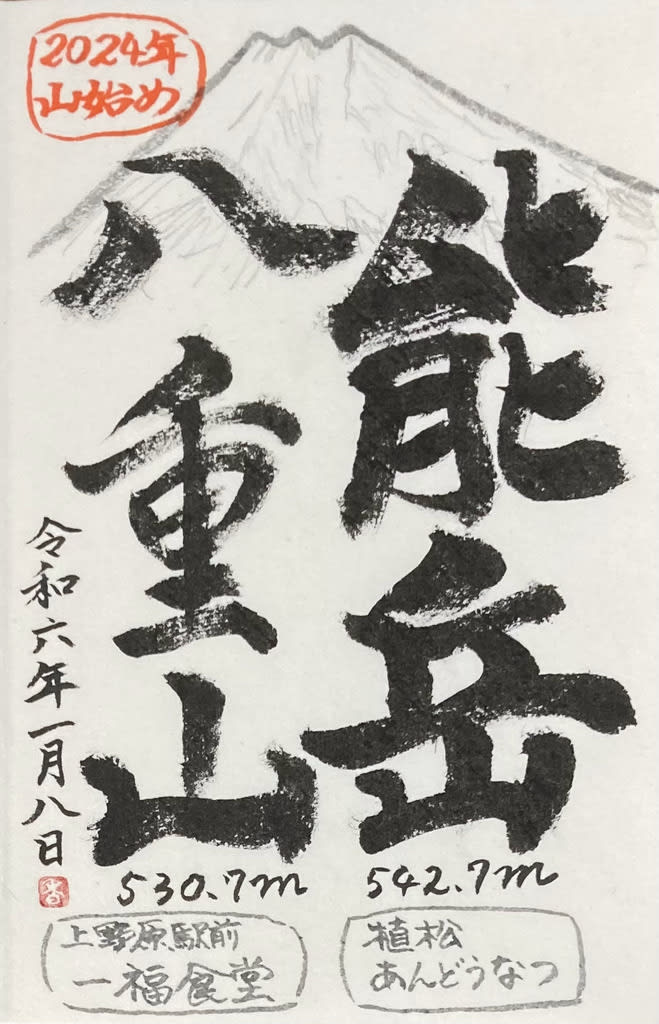 2024年
山始め
能岳
八重山
令和六年一月八日
香
542.7m
530.7m
植松
あんどうなつ
上野原駅前
一福食堂